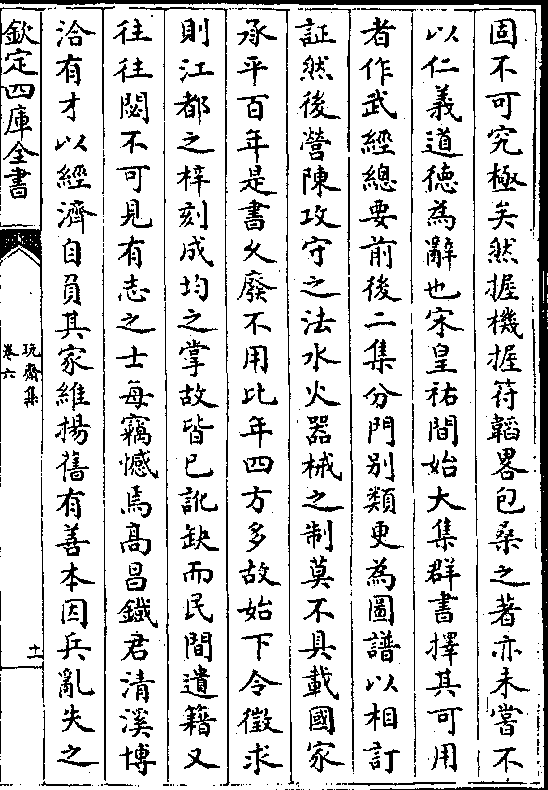 固不可究極矣然握機握符韜畧包桑之著亦未嘗不
以仁義道德為辭也宋皇祐間始大集群書擇其可用
者作武經總要前後二集分門別類更為圖譜以相訂
証然後營陳攻守之法水火器械之制莫不具載國家
承平百年是書久廢不用比年四方多故始下令徵求
則江都之梓刻成均之掌故皆已訛缺而民間遺籍又
往往閟不可見有志之士每竊憾焉高昌鐡君清溪博
洽有才以經濟自負其家維揚舊有善本因兵亂失之
欽定四庫全書
玩齋集
卷六
十一